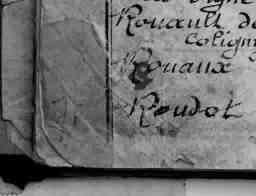 Rouault de
Coligny
Rouaux
Roudot